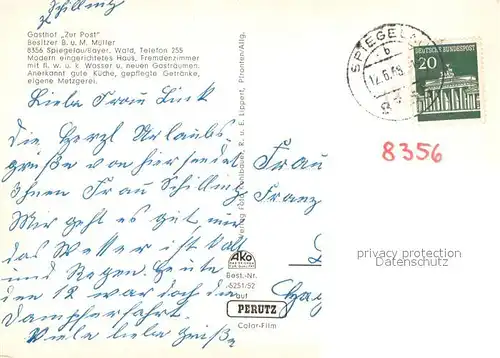 Schilling
Gasthof „Zur Post"
Besitzer B. u. M. Müller
8356 Spiegelau/Bayer. Wald, Telefon 255
Modern eingerichtetes Haus, Fremdenzimmer
mit fl. w. u. k. Wasser u. neuen Gasträumen.
Anerkannt gute Küche, gepflegte Getränke,
eigene Metzgerei.
Liebe Frau Link
die Herzl Urlaubs-
grüße von hier sendet
Ihnen Frau Schilling
Mir geht es gut, nur
das Wetter ist kalt
und Regen. Heute
den 12 war doch die
Dampferfahrt.
Viele liebe Grüße
R. u. E. Lippert, Pfronten/Allg.
AKO
Best.-Nr.
5251/52
auf
PERUTZ
Color-Film
SPIEGELAU
b
12.6.68
DEUTSCHE BUNDESPOST
20
8356
Frau
Franz
privacy protection
Datenschutz